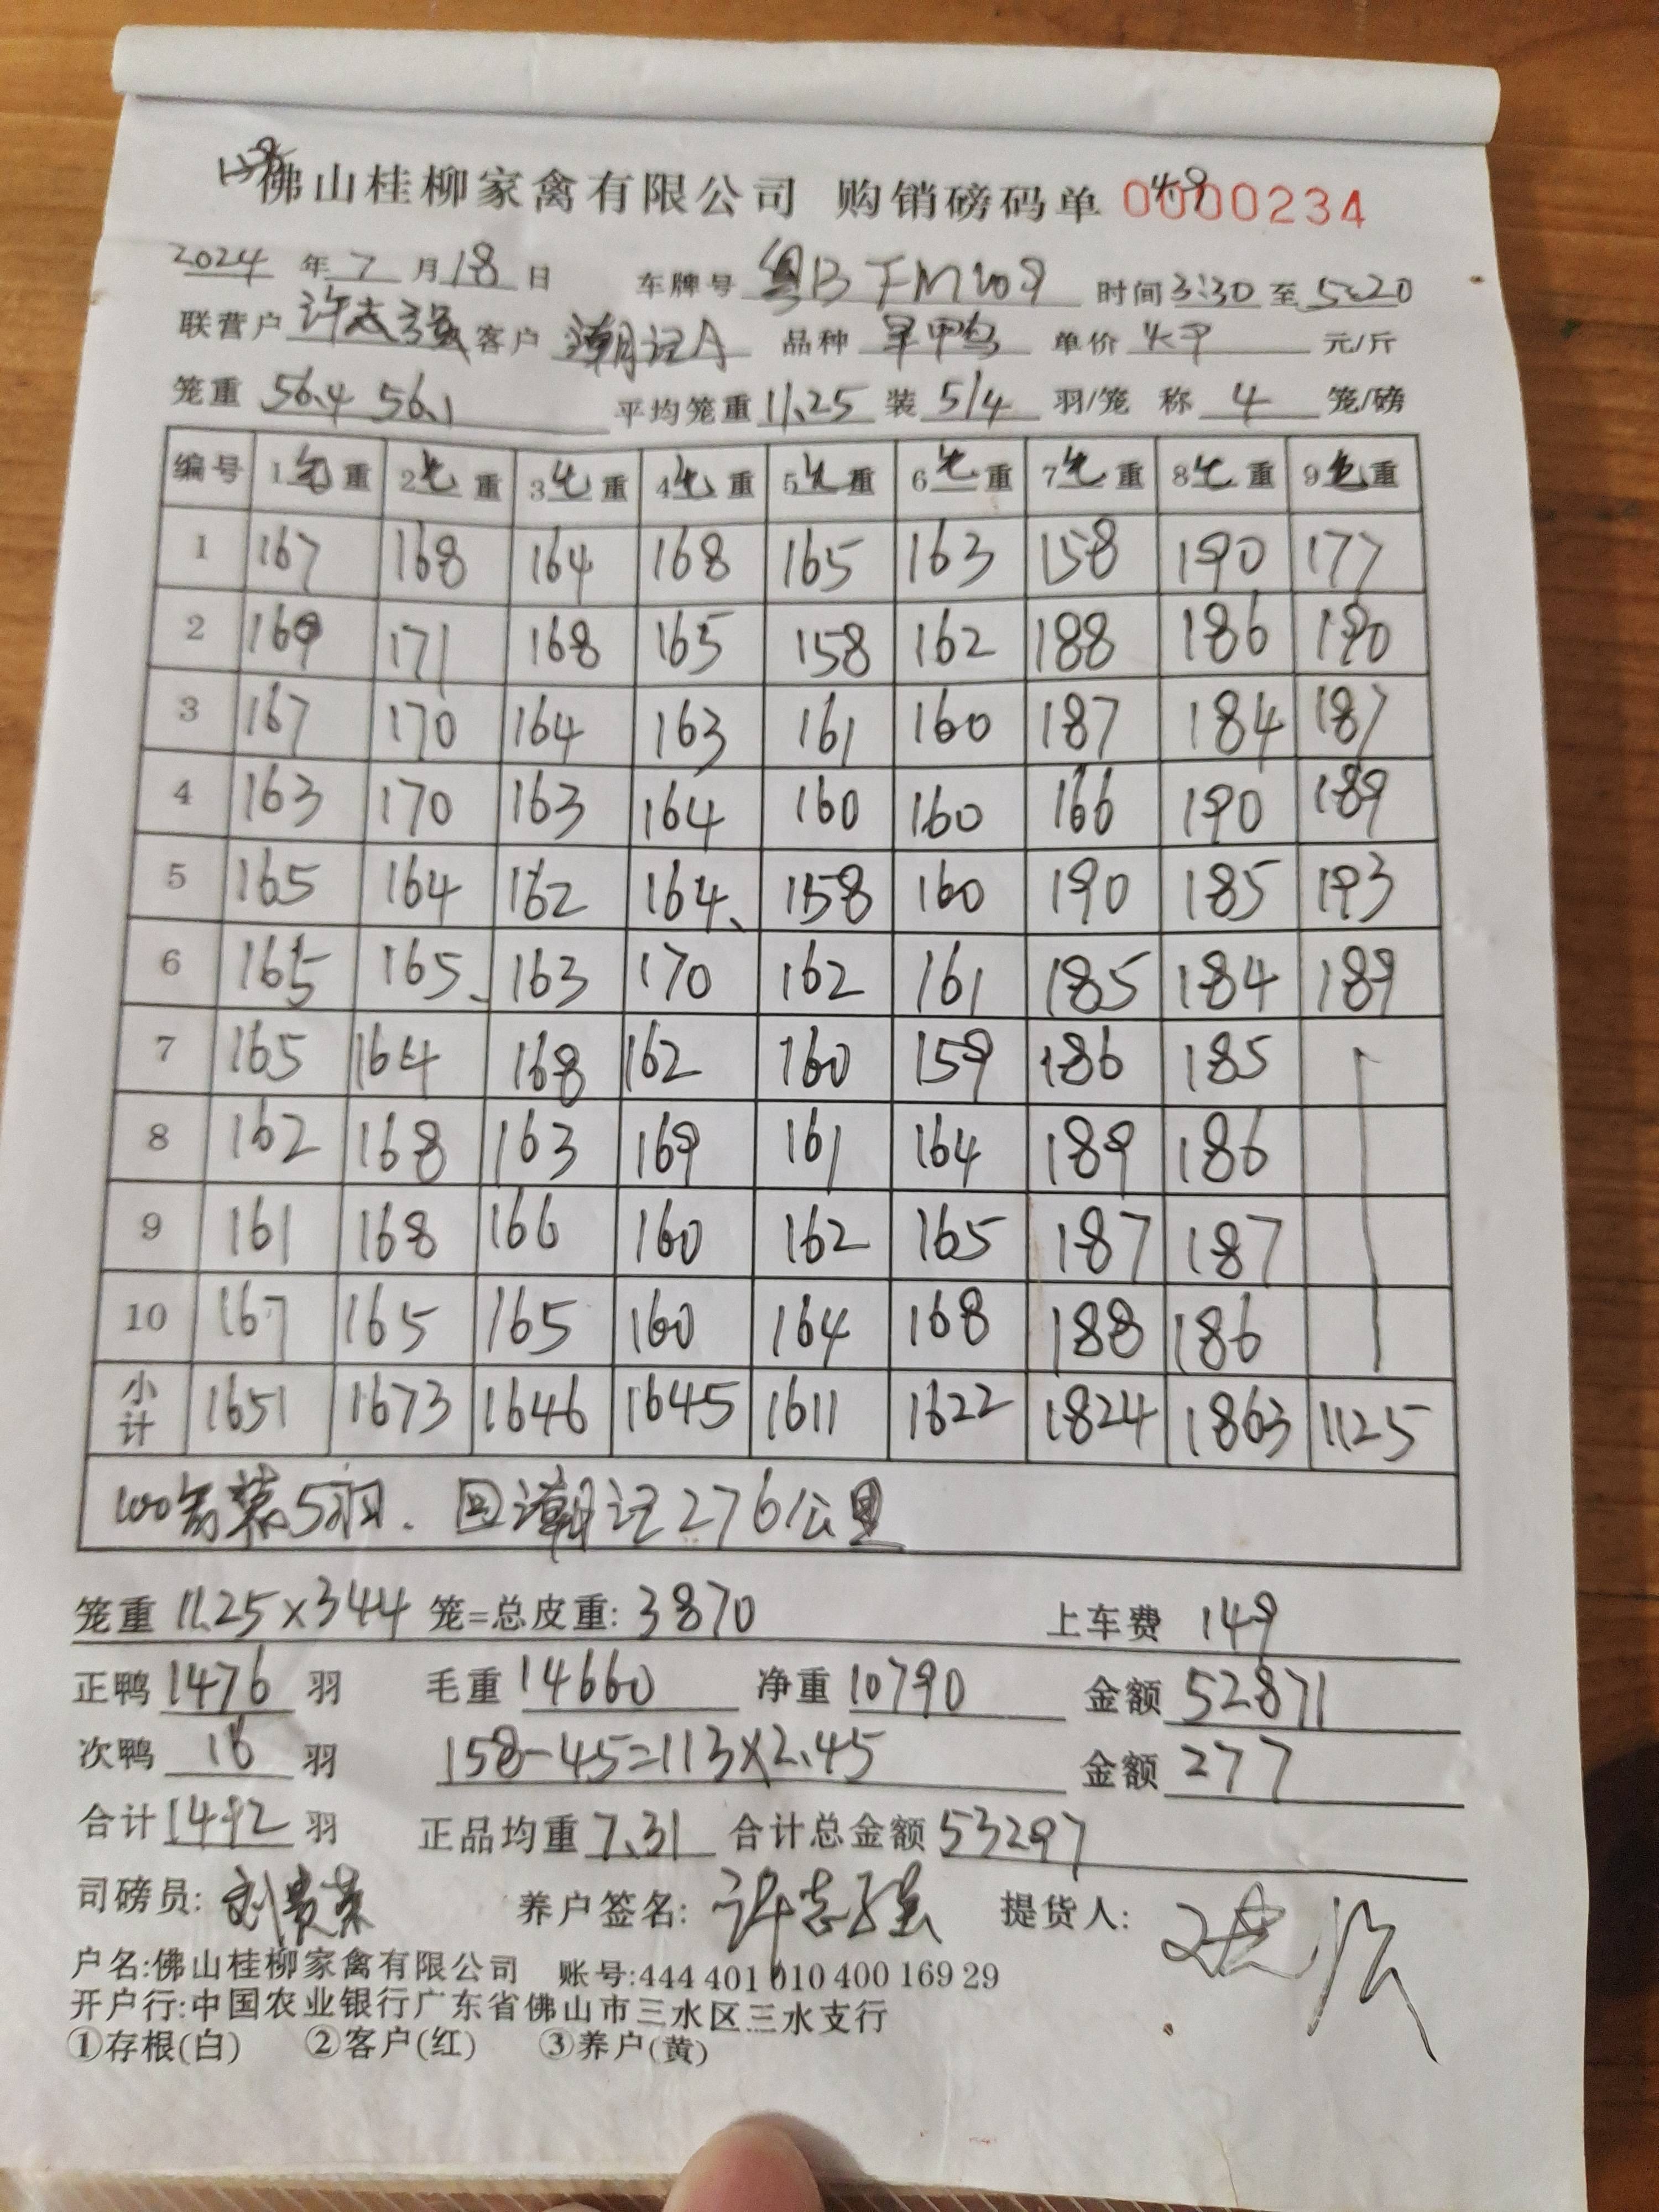 佛山桂柳家禽有限公司 购销磅码单 0000234
2024 年 7 月 18 日 车牌号 粤B 时间 3:30 至 5:20
联营户 许志强 客户 潮记A 品种 旱鸭 单价 4.9 元/斤
笼重 56.4 56.1 平均笼重 11.25 装 5/4 羽/笼 称 4 笼/磅
编号 1毛重 2毛重 3毛重 4毛重 5毛重 6毛重 7毛重 8毛重 9毛重
1 167 168 164 168 165 163 158 190 177
2 169 171 168 165 158 162 188 186 190
3 167 170 164 163 161 160 187 184 187
4 163 170 163 164 160 160 166 190 189
5 165 164 162 164 158 160 190 185 193
6 165 165 163 170 162 161 185 184 189
7 165 164 168 162 160 159 186 185
8 162 168 163 169 161 164 189 186
9 161 168 166 160 162 165 187 187
10 167 165 165 160 164 168 188 186
小计 1651 1673 1646 1645 1611 1622 1824 1863 1125
100只装5羽. 回潮记276公里
笼重 11.25×344 笼=总皮重: 3870 上车费 149
正鸭 1476 羽 毛重 14660 净重 10790 金额 52871
次鸭 16 羽 158-45=113×2.45 金额 277
合计 1492 羽 正品均重 7.31 合计总金额 53297
司磅员: 刘贵荣 养户签名: 许志强 提货人:
户名:佛山桂柳家禽有限公司 账号:444 401 010 400 169 29
开户行:中国农业银行广东省佛山市三水区三水支行
①存根(白) ②客户(红) ③养户(黄)